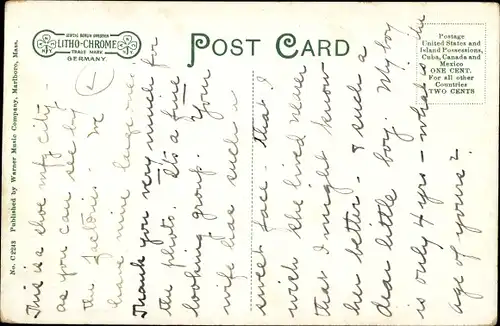 GENTAL BERLIN DRESDEN
LITHO-CHROME
TRADE MARK
GERMANY.
POST CARD
Postage
United States and
Island Possessions,
Cuba, Canada and
Mexico
ONE CENT.
For all other
Countries
TWO CENTS
No. C2243 Published by Warner Music Company, Marlboro, Mass.
This is a shoe mfg city -
as you can see by
the factories. We
have nine large one.
Thank you very much for
the photo. It's a fine
looking group. Your
wife has such a
sweet face that I
wish she lived near
that I might know
her better - & such a
dear little boy. My boy
is only 4 yrs - what is the
age of yours?